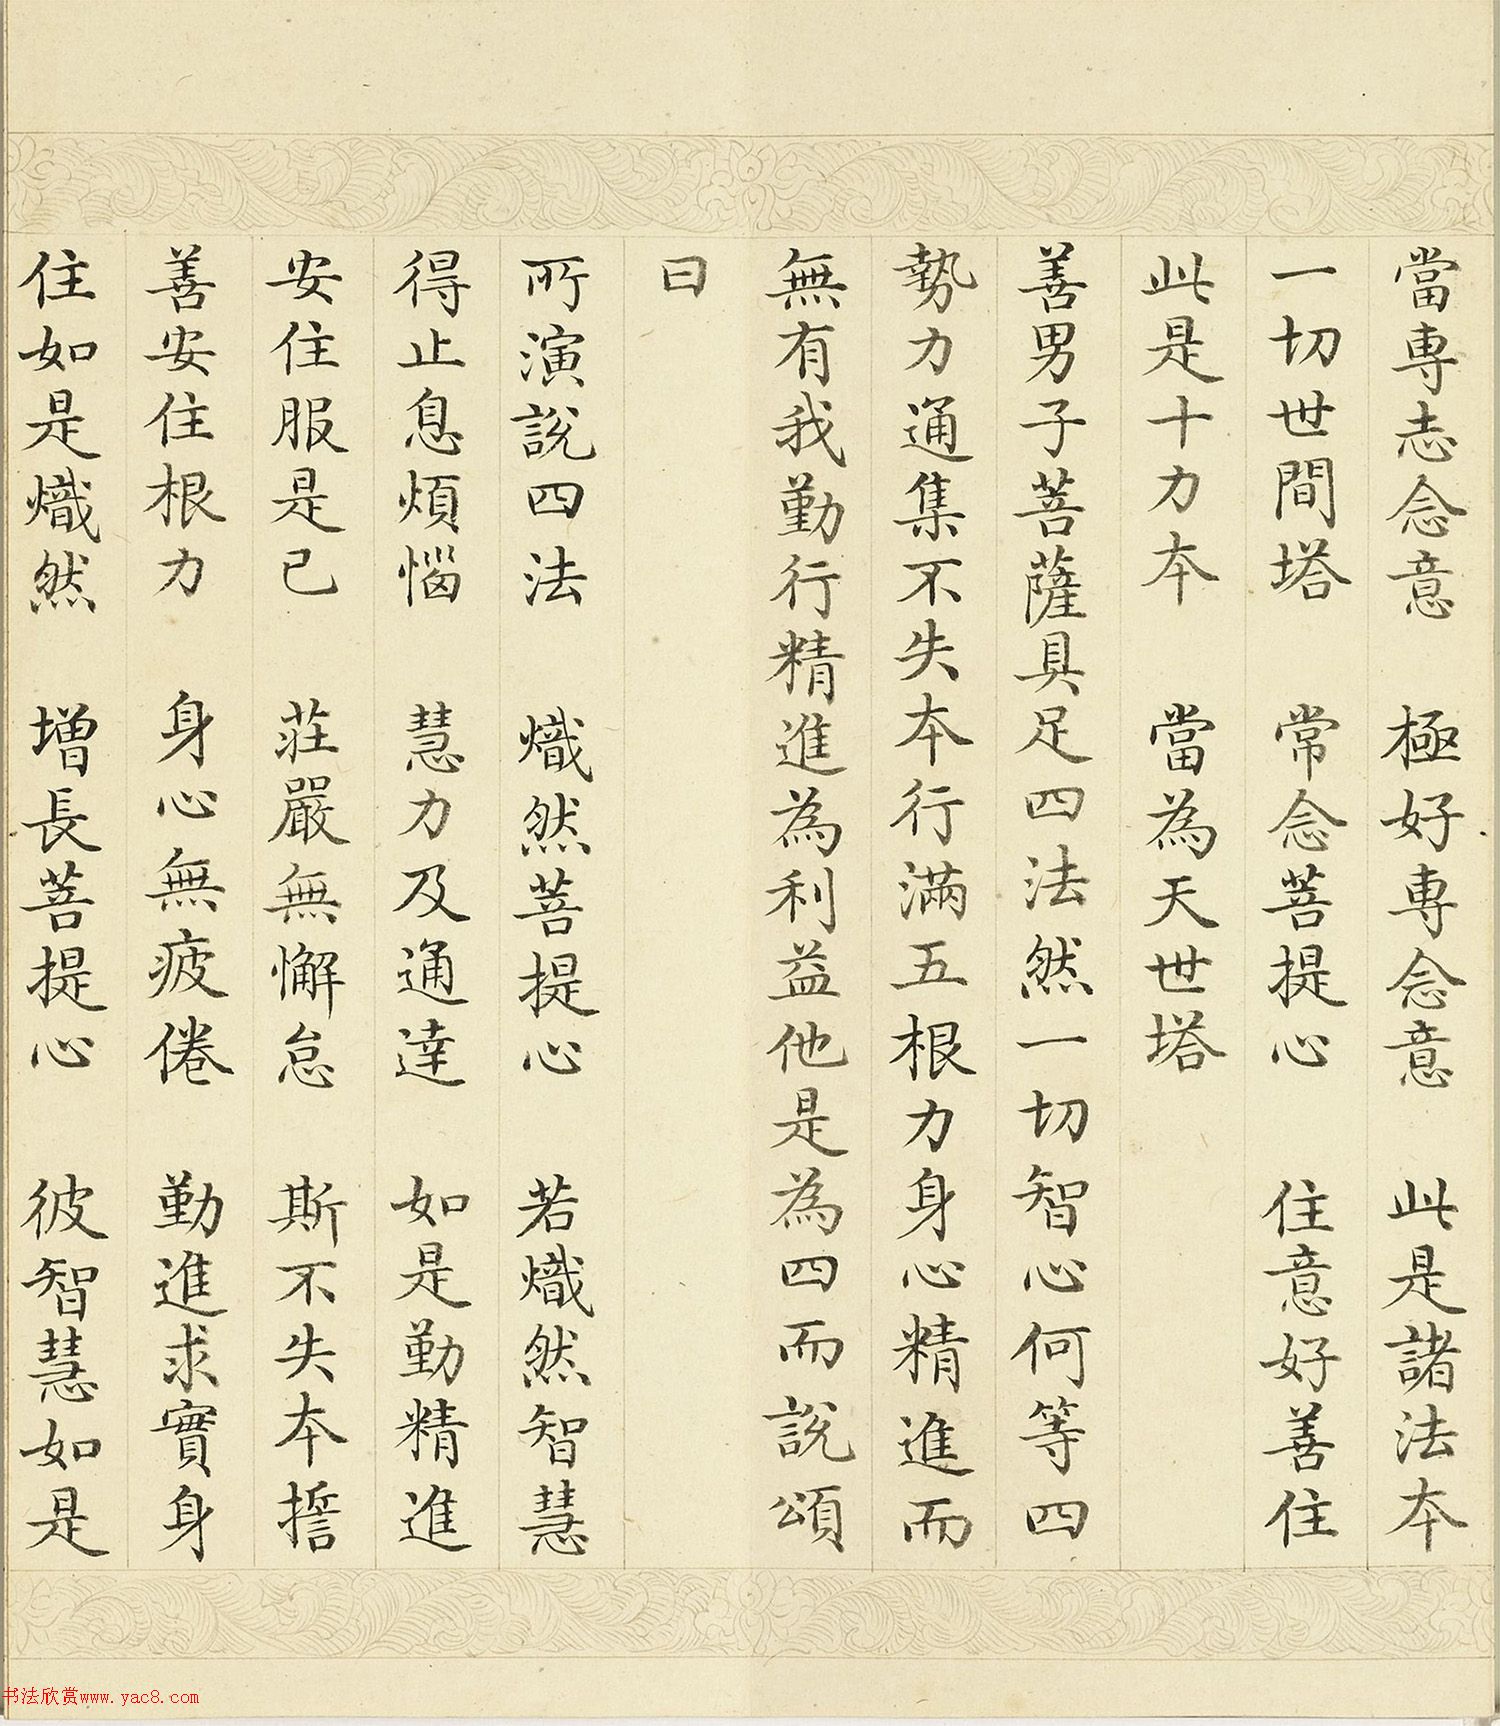 當專志念意　極好專念意　此是諸法本
一切世間塔　常念菩提心　住意好善住
此是十力本　當為天世塔
善男子菩薩具足四法然一切智心何等四
勢力通集不失本行滿五根力身心精進而
無有我勤行精進為利益他是為四而說頌
曰
所演說四法　熾然菩提心　若熾然智慧
得止息煩惱　慧力及通達　如是勤精進
安住服是已　莊嚴無懈怠　斯不失本誓
善安住根力　身心無疲倦　勤進求實身
住如是熾然　增長菩提心　彼智慧如是
书法欣赏www.yac8.com